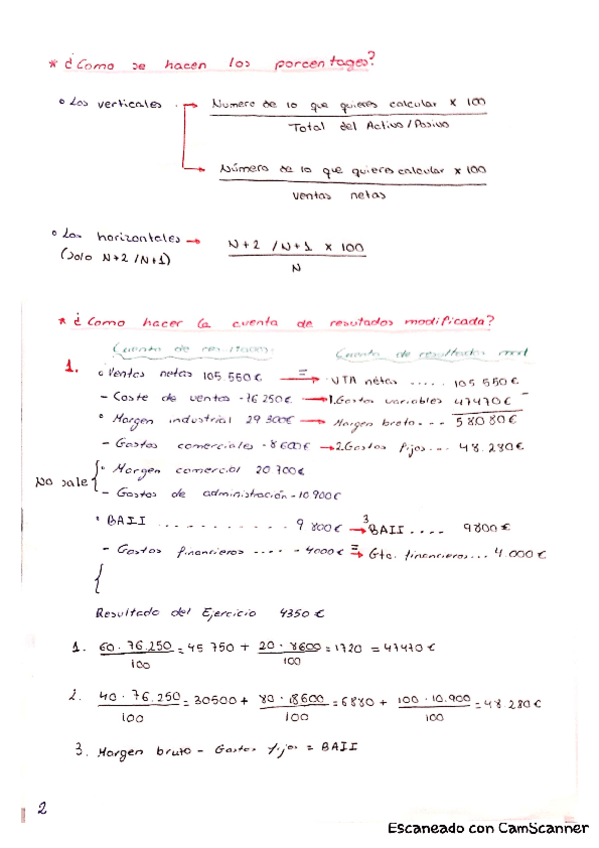 * ¿Como se hacen los porcentages?
• Los verticales → Numero de lo que quieres calcular x 100
Total del Activo/Pasivo
→ Número de lo que quieres calcular x 100
ventas netas
• Los horizontales → N+2 /N+1 x 100
(solo N+2 /N+1) N
* ¿Como hacer la cuenta de resutados modificada?
Cuenta de resultados. Cuenta de resultados mod
1. • Ventas netas 105.550€ = → VTA nétas ..... 105 550€
- Coste de ventas -76 250€ → 1.Gastos variables 47470€ -
• Margen industrial 29 300€ → Margen bruto... 58080€
- Gastos comerciales -8600€ → 2.Gastos fijos... 48.280€
No sale { • Margen comercial 20 700€
- Gastos de administración -10 900€
• BAII ........... 9 800€ 3 → BAII .... 9800€
- Gastos financieros .... -4000€ = → Gto. financieros... 4.000€
{
Resultado del Ejercicio 4350€
1. 60 · 76.250 = 45 750 + 20 · 8600 = 1720 = 47470€
100 100
2. 40 · 76.250 = 30500 + 80 · 18600 = 6880 + 100 · 10.900 = 48.280€
100 100 100
3. Margen bruto - Gastos fijos = BAII
2
Escaneado con CamScanner